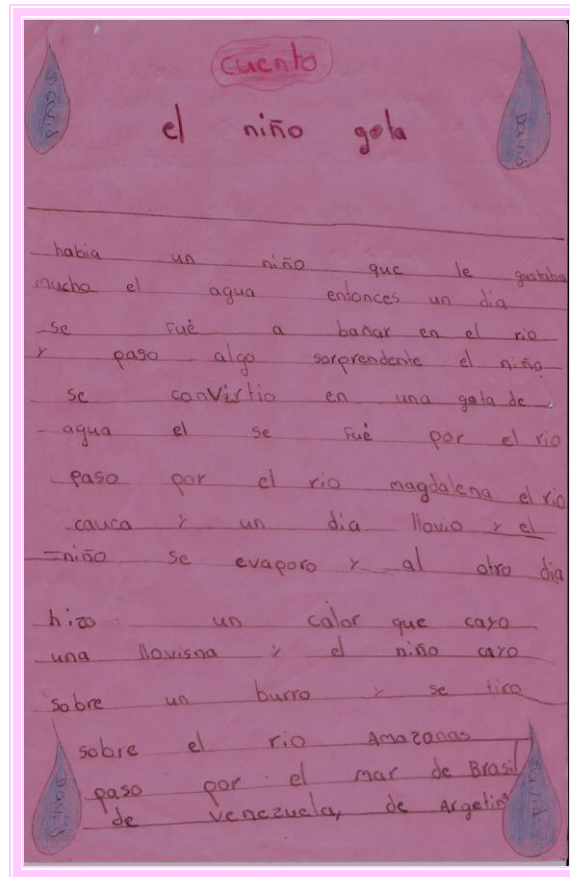 cuento
el niño gota
David
David
habia un niño que le gustaba
mucho el agua entonces un dia
se fué a bañar en el rio
y paso algo sorprendente el niño
se convirtio en una gata de
agua el se fué por el rio
paso por el rio magdalena el rio
cauca y un dia llovio y el
=niño se evaporo y al otro dia
hizo un calor que cayo
una llovisna y el niño cayo
sobre un burro y se tiro
sobre el rio Amazonas
paso por el mar de Brasil
de venezuela, de Argetin
David
David